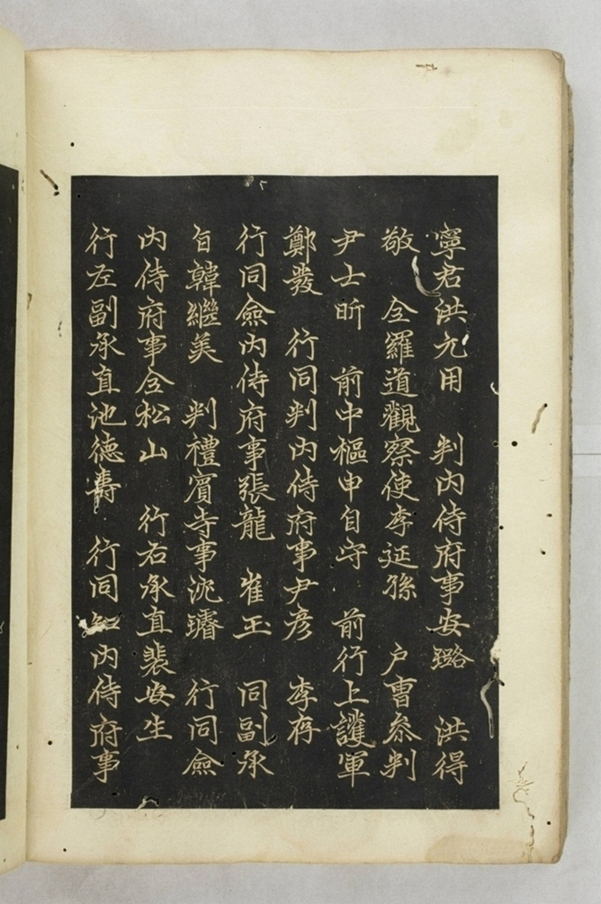 寧君洪允用 判內侍府事安璐 洪得
敬 全羅道觀察使李延孫 戶曹叅判
尹士昕 前中樞申自守 前行上護軍
鄭發 行同判內侍府事尹彦 李存
行同僉內侍府事張龍 崔玉 同副承
旨韓繼美 判禮賓寺事沈璿 行同僉
內侍府事全松山 行右承直裴安生
行左副承直池德壽 行同知內侍府事